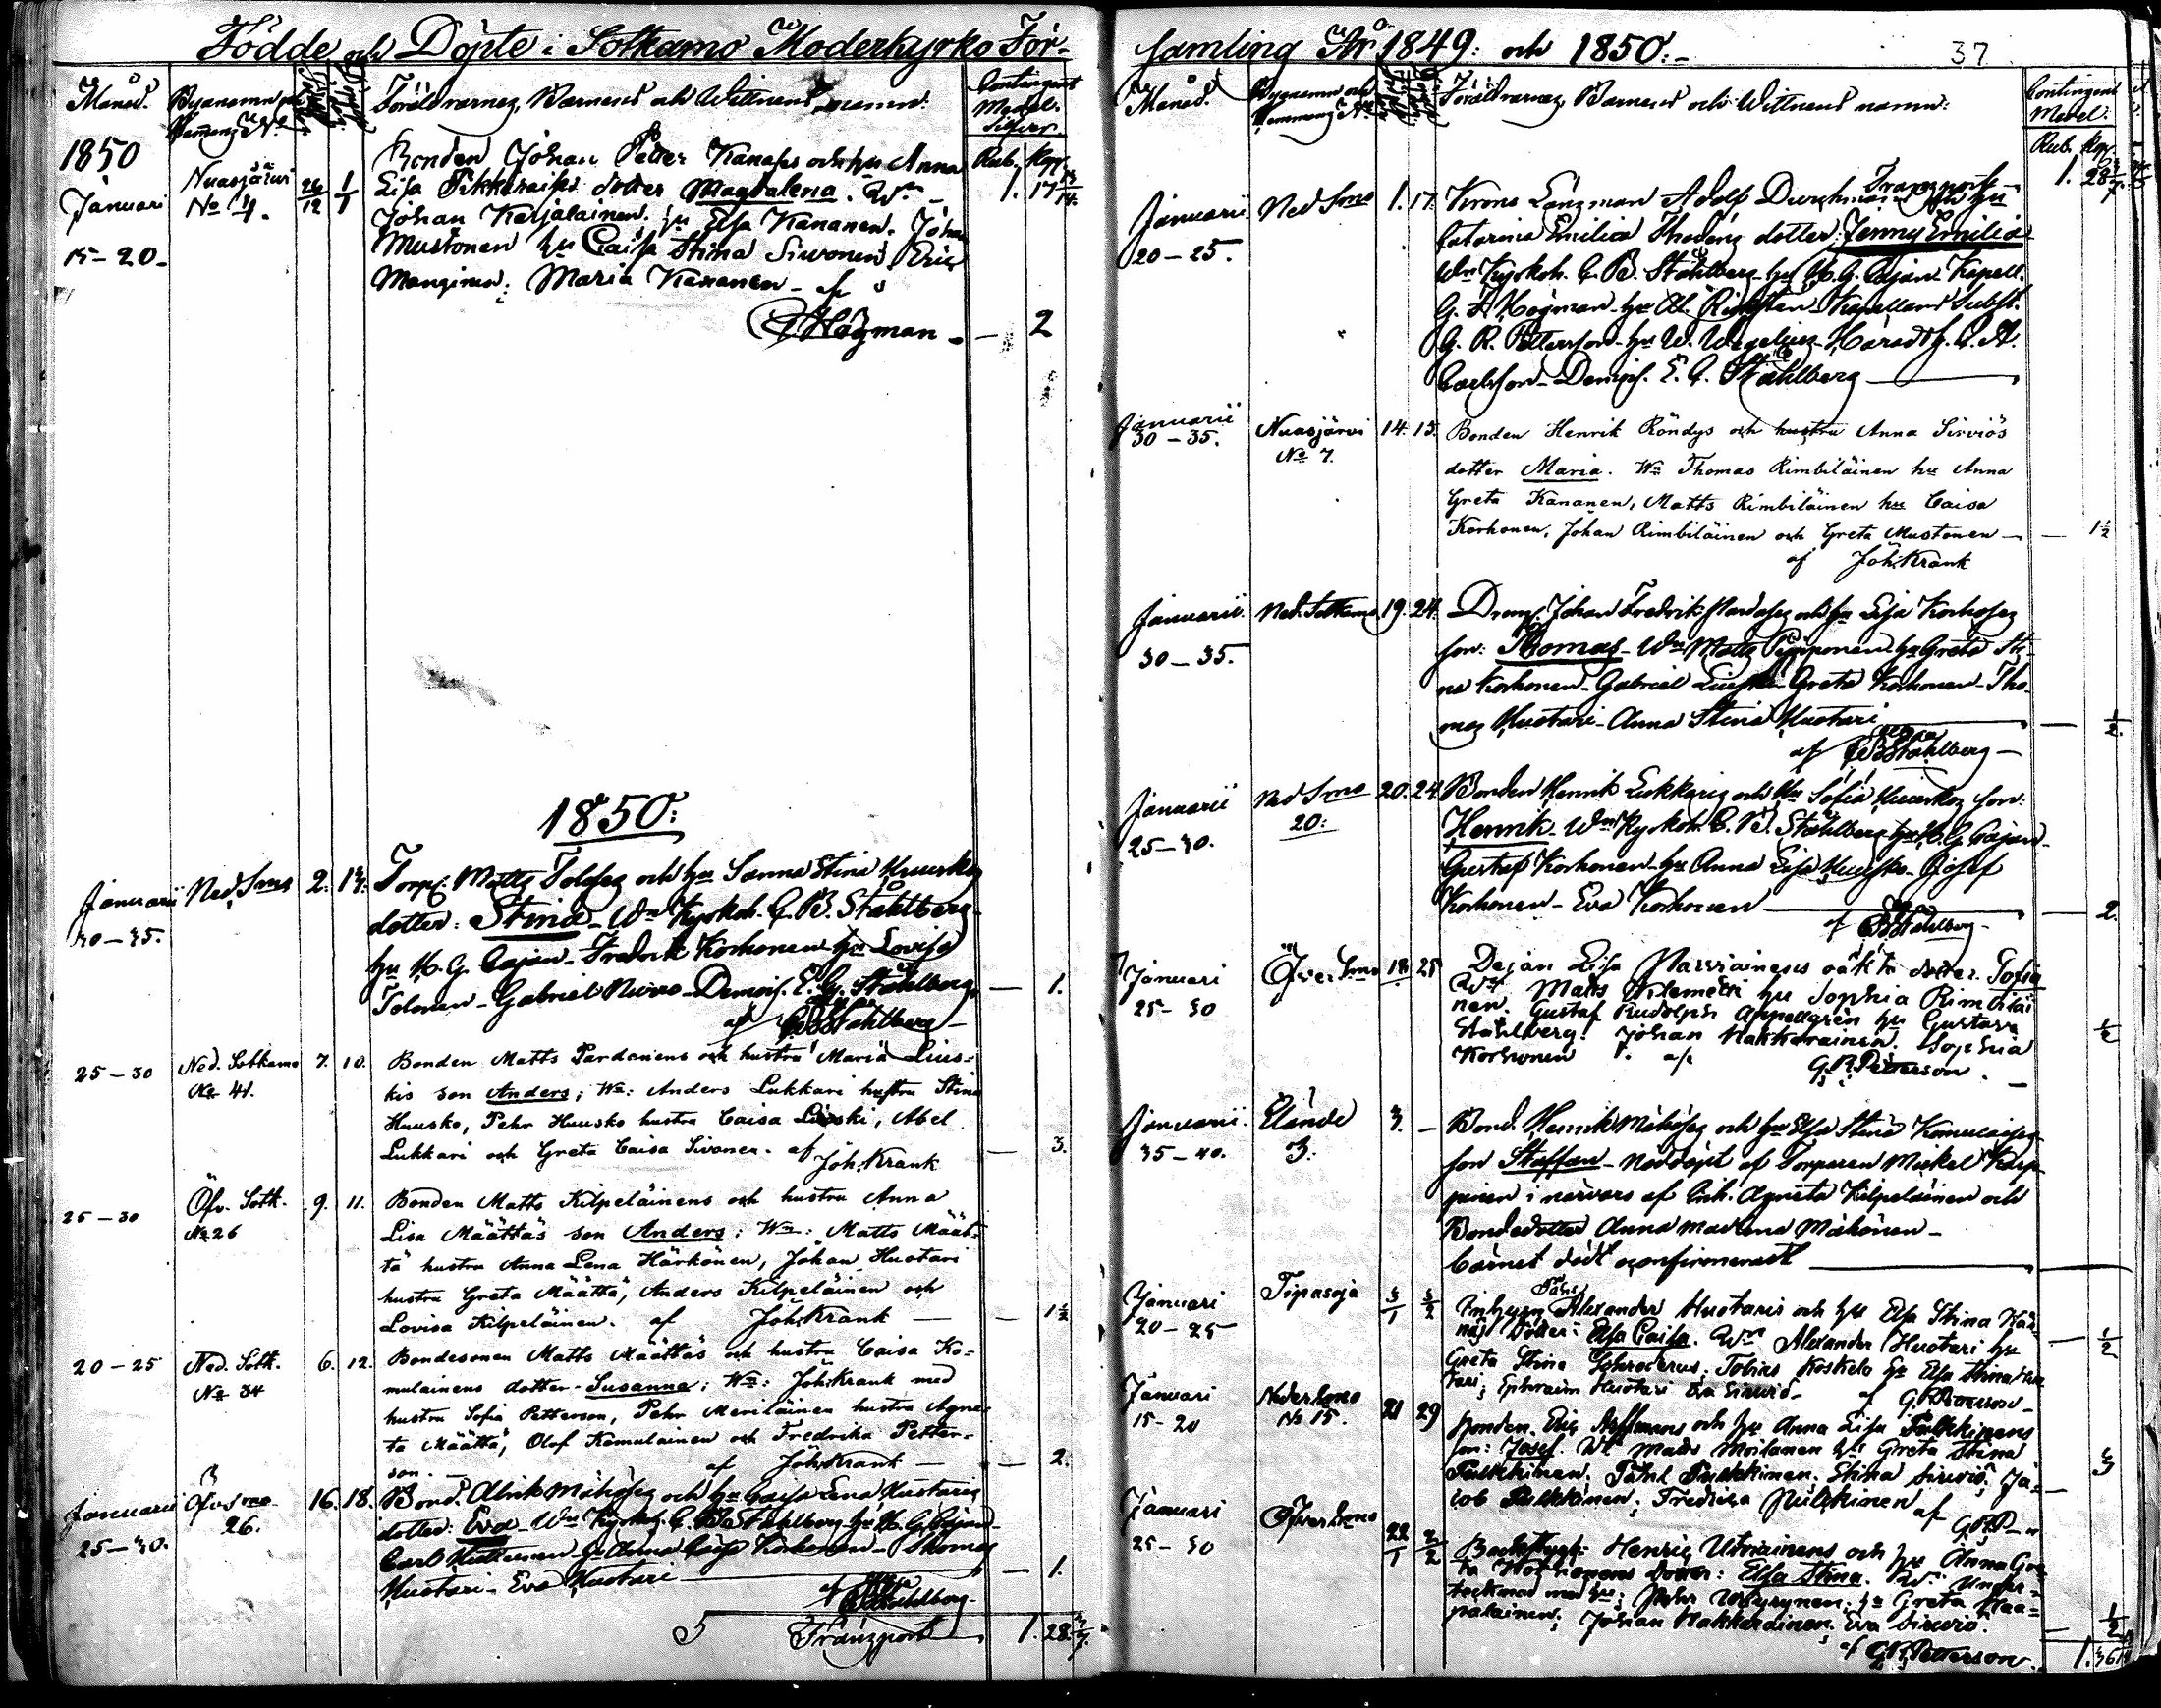 Födde och Döpte i Sotkamo Moderkyrko För-
Månad.
Föräldrarnes, Barnens och Wittnens namn:
Contingent
Medel.
Silfver.
Rub. Kop.
1850
Januari
15-20-
Nuasjärvi
No 4.
26/12
1/1
Bonden Johan Petter Kananens och hu Anna
Lisa dotter Magdalena. Wn
Johan Karjalainen. hu Elsa Kananen. Johan
Mustonen hu Caisa Stina Sivonen. Eric
Manginen; Maria Kananen - af
Hågman - — 2
1. 17
1850:
Januarii
30-35.
Ned. Smo 2. 13.
Torp. Matts och hu Sanna Stina Huuskos
dotter: Stina - Wn Kyrkoh. C. B. Ståhlberg
hu H. G. Cajan - Fredrik Korhonen hu Lovisa
Tolonen - Gabriel - Demois. E. G. Ståhlberg, — 1.
af CBStåhlberg -
25-30
Ned. Sotkamo
No 41.
7. 10.
Bonden Matts Pardanens och hustru Maria Lius-
kis son Anders; Wn: Anders Lukkari hustru Stina
Huusko, Pehr Huusko hustru Caisa Liuski, Abel
Lukkari och Greta Caisa Sivonen. af Joh. Krank — 3.
25-30
Öfv. Sotk.
No 26
9. 11.
Bonden Matts Kilpeläinens och hustru Anna
Lisa Määttäs son Anders: Wn: Matts Määt-
tä hustru Anna Lena Härkönen, Johan Huotari
hustru Greta Määttä, Anders Kilpeläinen och
Lovisa Kilpeläinen. af Joh. Krank — 1½
20-25
Ned. Sotk.
No 34
6. 12.
Bondesonen Matts Määttäs och hustru Caisa Ko-
mulainens dotter - Susanna; Wn: Joh. Krank med
hustru Sofia Petterson, Pehr Meriläinen hustru Agne-
ta Määttä, Olof Komulainen och Fredrika Petter-
son. - af Joh. Krank — 2.
Januarii
25-30.
Öfv Smo
26.
16. 18.
Bond. Ulrik och hu Caisa Lena Huotaris
dotter: Eva - Wn Kyrkoh. C. B. Ståhlberg hu H. G. Cajan -
Carl hu Anna Caisa Korhonen - Thomas
Huotari - Eva Huotari — 1.
af CBStåhlberg -
Transport 1. 28
samling År 1849: och 1850:-
37
Månad.
Föräldrarnes, Barnens och Wittnens namn:
Contingent
Medel:
Rub. Kop.
Transport 1. 28
Januarii
20-25.
Ned Smo 1. 17.
Krono Länsman Adolf och hu
Catarina Emilia dotter: Jenny Emilia
Wn Kyrkoh. C. B. Ståhlberg hu H. G. Cajan - Kapell.
G. F. Hogman - hu - Kapellans Subst.
G. R. Petterson - hu W. Wegelius - Häradsh. C. A.
Carlsson - Demois. E. G. Ståhlberg
Januarii
30-35.
Nuasjärvi
No 7.
14. 15.
Bonden Henrik Röndys och hustru Anna Sirviös
dotter Maria. Wn Thomas Rimbiläinen hu Anna
Greta Kananen, Matts Rimbiläinen hu Caisa
Korhonen, Johan Rimbiläinen och Greta Mustonen — 1½
af Joh. Krank
Januarii
30-35.
Ned. Sotkamo 19. 24.
Dreng. Johan Fredrik och hu Lisa
son: Thomas - Wn Matts Piipponen hu Greta Sti-
na Korhonen - Gabriel - Greta Korhonen - Tho-
mas Huotari - Anna Stina Huotari — ½
af CBStåhlberg -
Januarii
25-30.
Ned Smo
20:
20. 24.
Bonden Henrik Lukkaris och hu Sofia Huuskos son:
Henrik - Wn Kyrkoh. C. B. Ståhlberg hu H. G. Cajan -
Gustaf Korhonen - hu Anna Lisa Huusko - Josef
Korhonen - Eva Korhonen — 2.
af CBStåhlberg -
Januari
25-30
Öfver Smo 18 25
Dejan Lisa oäkta dotter. Sofia
Wn Matts Klemetti hu Sophia Rimbiläi
nen. Gustaf Rudolph Appellgren hu Gustava
Ståhlberg. Johan Hakkarainen. Sophia
Korhonen. af G. R. Petterson. — ½
Januarii.
35-40.
Elände
3.
3. -
Bond. Henrik och hu Elsa Stina
son Staffan - Noddöpt af Torparen Mickel Karp-
pinen i närvaro af Enk. Agneta Kilpeläinen och
Bondedotter Anna Madlena Mähönen -
barnet dödt oconfirmeradt
Januari
20-25
Tipasoja
3/1
3/2
Inhysn Alexander Huotaris och hu Elsa Stina
dotter: Elsa Caisa. Wn Alexander Huotari hu
Greta Stina Tobias Koskelo hu Elsa Stina Huo-
tari; Ephraim Huotari Eva Sirviö - af G. R. Petterson - — ½
Januari
15-20
Neder Smo
No 15.
21 29
Bonden Eric och hu Anna Lisa Pulkkinens
son: Josef. Wn Matts Moilanen hu Greta Stina
Pulkkinen. Påhl Pulkkinen. Stina Sirviö, Ja-
cob Pulkkinen; Fredrica Pulkkinen af G. R. P-n — 3
Januari
25-30
Öfver Smo
22/1
2/2
Henric och hu Anna Gre-
ta dotter: Elsa Stina. Wn Under-
tecknad med hu; Petter hu Greta Haa-
palainen; Johan Hakkarainen. Eva Sirviö. — ½
af G. R. Petterson. 1. 36